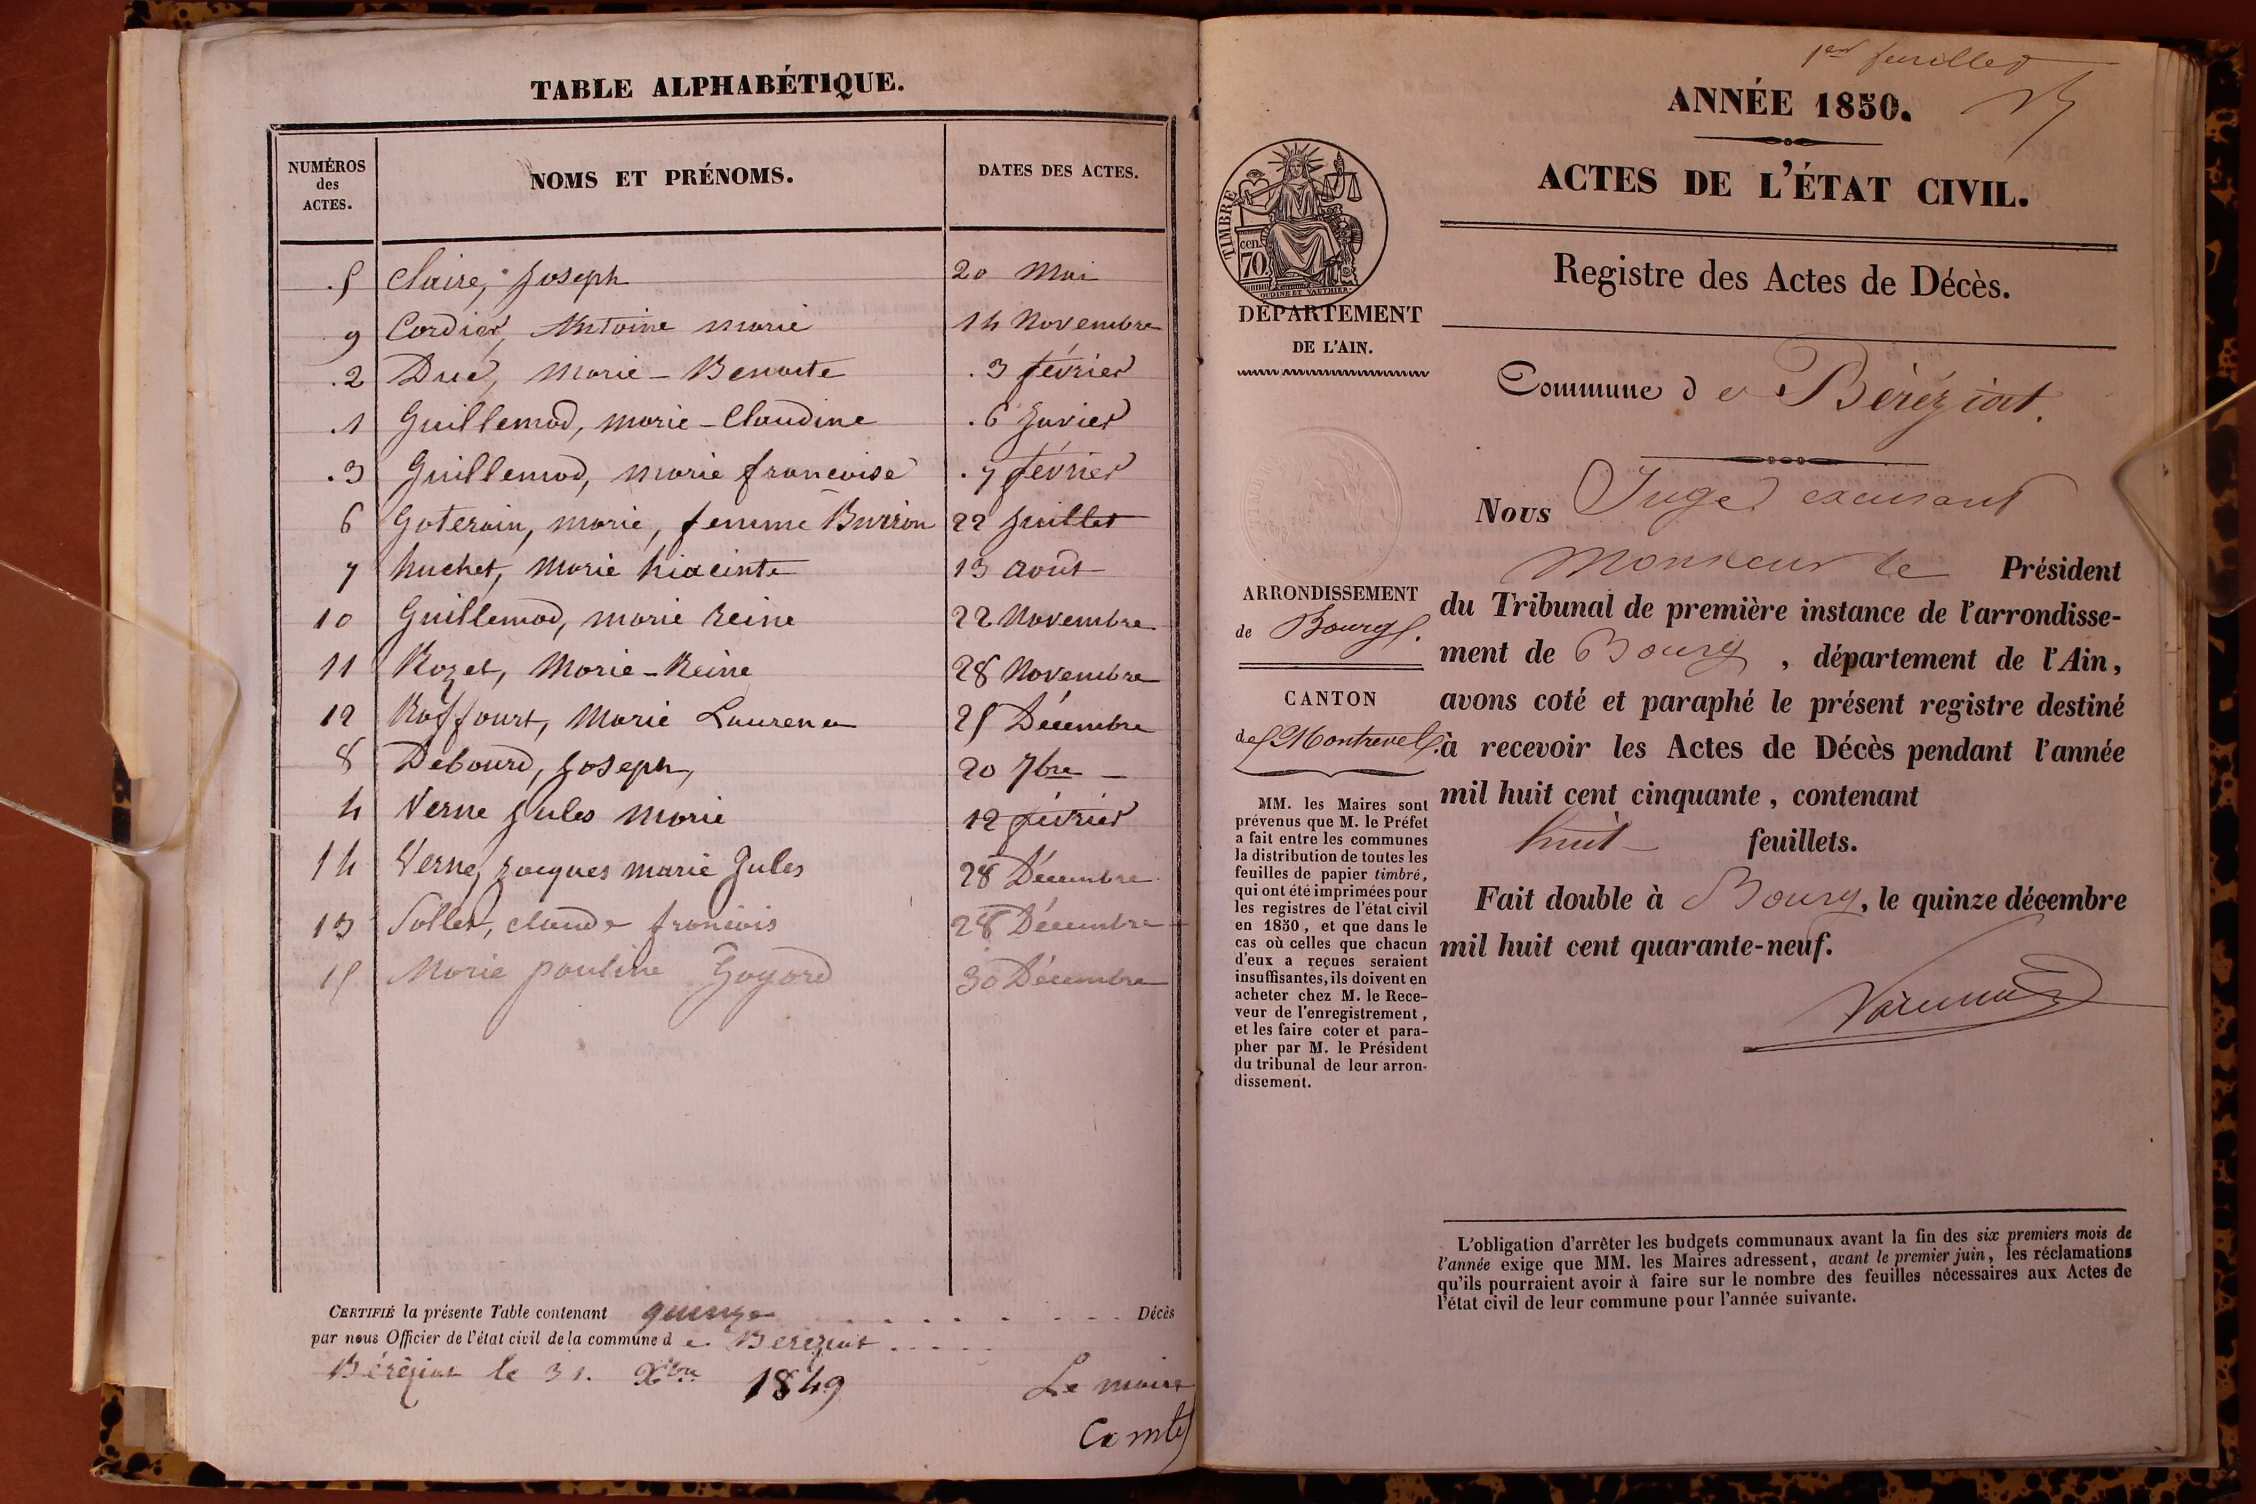 TABLE ALPHABÉTIQUE.
NUMÉROS des ACTES. NOMS ET PRÉNOMS. DATES DES ACTES.
.5 Claire, Joseph 20 Mai
9 Cordier, Antoine Marie 14 Novembre
.2 Duc, Marie-Benoite .3 février
.1 Guillemod, Marie-Claudine .6 Janvier
.3 Guillemod, Marie francoise .7 février
6 Goterain, Marie, femme Burrion 22 Juillet
7 huchet, Marie hiacinte 13 août
10 Guillemod, marie Reine 22 Novembre
11 Rozet, Marie-Reine 28 Novembre
12 Roffourt, Marie 25 Décembre
8 Debourd, Joseph, 20 7bre
4 Verne Jules Marie 12 février
14 Verne, Jacques marie Jules 28 Décembre
13 Sollet, claude francois 28 Décembre
15 Marie pauline Goyard 30 Décembre
CERTIFIÉ la présente Table contenant quinze Décès
par nous Officier de l'état civil de la commune de Béréziat
Béréziat le 31. Xbre 1849
Le maire
Comte
1er feuillet
ANNÉE 1850.
ACTES DE L'ÉTAT CIVIL.
Registre des Actes de Décès.
TIMBRE
70 cen.
OUDINE ET VAUTHIER
DÉPARTEMENT
DE L'AIN.
Commune de Béréziat.
ARRONDISSEMENT
de Bourg.
CANTON
de Montrevel.
MM. les Maires sont
prévenus que M. le Préfet
a fait entre les communes
la distribution de toutes les
feuilles de papier timbré,
qui ont été imprimées pour
les registres de l'état civil
en 1850, et que dans le
cas où celles que chacun
d'eux a reçues seraient
insuffisantes, ils doivent en
acheter chez M. le Rece-
veur de l'enregistrement,
et les faire coter et para-
pher par M. le Président
du tribunal de leur arron-
dissement.
Nous Juge excusant
Monsieur le Président
du Tribunal de première instance de l'arrondisse-
ment de Bourg, département de l'Ain,
avons coté et paraphé le présent registre destiné
à recevoir les Actes de Décès pendant l'année
mil huit cent cinquante, contenant
huit feuillets.
Fait double à Bourg, le quinze décembre
mil huit cent quarante-neuf.
L'obligation d'arrêter les budgets communaux avant la fin des six premiers mois de
l'année exige que MM. les Maires adressent, avant le premier juin, les réclamations
qu'ils pourraient avoir à faire sur le nombre des feuilles nécessaires aux Actes de
l'état civil de leur commune pour l'année suivante.